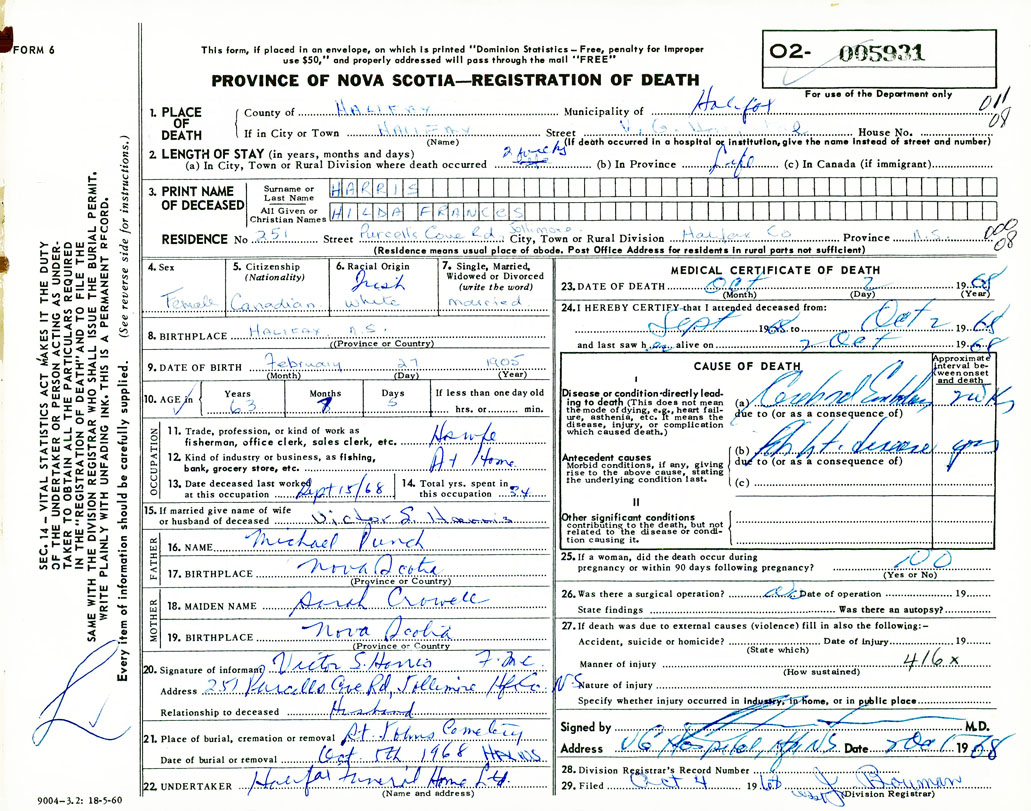 FORM 6
This form, if placed in an envelope, on which is printed "Dominion Statistics – Free, penalty for improper
use $50," and properly addressed will pass through the mail "FREE"
PROVINCE OF NOVA SCOTIA—REGISTRATION OF DEATH
O2- 005931
For use of the Department only
011
08
1. PLACE OF DEATH
County of HALIFAX Municipality of Halifax
If in City or Town HALIFAX Street V.G. House No.
(Name) (If death occurred in a hospital or institution, give the name instead of street and number)
2. LENGTH OF STAY (in years, months and days)
(a) In City, Town or Rural Division where death occurred 2 weeks (b) In Province Life (c) In Canada (if immigrant)
3. PRINT NAME OF DECEASED
Surname or Last Name HARRIS
All Given or Christian Names HILDA FRANCES
RESIDENCE No 251 Street Purcells Cove Rd, Jollimore City, Town or Rural Division Halifax Co Province N.S.
08
(Residence means usual place of abode. Post Office Address for residents in rural parts not sufficient)
4. Sex Female
5. Citizenship (Nationality) Canadian
6. Racial Origin Irish White
7. Single, Married, Widowed or Divorced (write the word) Married
8. BIRTHPLACE HALIFAX N.S.
(Province or Country)
9. DATE OF BIRTH February 27 1905
(Month) (Day) (Year)
10. AGE in Years 63 Months 7 Days 5 If less than one day old hrs. or min.
OCCUPATION
11. Trade, profession, or kind of work as fisherman, office clerk, sales clerk, etc. Hswfe
12. Kind of industry or business, as fishing, bank, grocery store, etc. At Home
13. Date deceased last worked at this occupation Sept 15/68
14. Total yrs. spent in this occupation 34
15. If married give name of wife or husband of deceased Victor S. Harris
FATHER
16. NAME Michael Punch
17. BIRTHPLACE Nova Scotia
(Province or Country)
MOTHER
18. MAIDEN NAME Sarah Crowell
19. BIRTHPLACE Nova Scotia
(Province or Country)
20. Signature of informant Victor S. Harris
Address 251 Purcells Cove Rd, Jollimore Hfx Co. NS
Relationship to deceased Husband
21. Place of burial, cremation or removal St Johns Cemetery
Date of burial or removal Oct. 5th 1968
22. UNDERTAKER Halifax Funeral Home Ltd.
(Name and address)
9004–3.2: 18-5-60
MEDICAL CERTIFICATE OF DEATH
23. DATE OF DEATH Oct 2 1968
(Month) (Day) (Year)
24. I HEREBY CERTIFY that I attended deceased from:
Sept 1968 to Oct 2 1968
and last saw h er alive on 2 Oct 1968
CAUSE OF DEATH
Approximate interval between onset and death
I
Disease or condition directly leading to death (This does not mean the mode of dying, e.g., heart failure, asthenia, etc. It means the disease, injury, or complication which caused death.)
(a) Cerebral Embolism 2 wks
due to (or as a consequence of)
Antecedent causes
Morbid conditions, if any, giving rise to the above cause, stating the underlying condition last.
(b) Rh ht. disease yrs
due to (or as a consequence of)
(c)
II
Other significant conditions
contributing to the death, but not related to the disease or condition causing it.
25. If a woman, did the death occur during pregnancy or within 90 days following pregnancy? NO
(Yes or No)
26. Was there a surgical operation? no Date of operation 19
State findings Was there an autopsy?
27. If death was due to external causes (violence) fill in also the following:–
Accident, suicide or homicide? Date of injury 19
(State which)
Manner of injury 416x
(How sustained)
Nature of injury
Specify whether injury occurred in Industry, in home, or in public place
Signed by M.D.
Address VG Hospital, Hfx NS Date 2 Oct 1968
28. Division Registrar's Record Number
29. Filed Oct 4 1968
(Division Registrar)
SEC. 14 – VITAL STATISTICS ACT MAKES IT THE DUTY
OF THE UNDERTAKER OR PERSON ACTING AS UNDER-
TAKER TO OBTAIN ALL THE PARTICULARS REQUIRED
IN THE "REGISTRATION OF DEATH" AND TO FILE THE
SAME WITH THE DIVISION REGISTRAR WHO SHALL ISSUE THE BURIAL PERMIT.
WRITE PLAINLY WITH UNFADING INK. THIS IS A PERMANENT RECORD.
Every item of information should be carefully supplied. (See reverse side for instructions.)